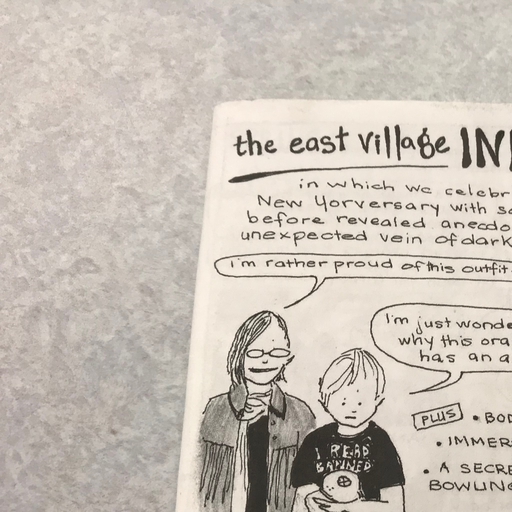 the east village IN
in which we celebr
New Yorversary with s
before revealed anecdo
unexpected vein of dark
i'm rather proud of this outfit
I'm just wonde
why this ora
has an a
PLUS • BOD
• IMMER
• A SECRE
BOWLING
I READ
BANNED